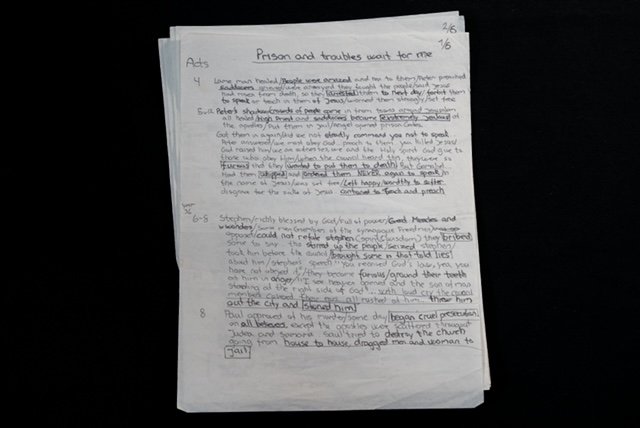 2/6
1/6
Prison and troubles wait for me
Acts
4 Lame man healed/People were amazed and ran to them/Peter preached
sadducees were annoyed they taught the people/said Jesus
had risen from death, so they arrested them to next day/forbit them
to speak or teach in them of Jesus/warned them strongly/set free
5-a Peter's shadow/crowds of people came in from towns around Jerusalem
all healed High Priest and sadducees became extremely jealous of
the apostles/Put them in jail/angel opened prison Gates.
Got them in again/did we not stricktly command you not to speak
Peter answered/we must obey God. preach to them you killed Jesus/
God raised him/we are witnesses, we and the Holy Spirit God give to
those who obey Him/when the council heard this, they were so
furious that they wanted to put them to death But Gamaliel
Had them whipped and ordered them NEVER again to speak in
the name of Jesus/was set free/Left happy/worthy to suffer
disgrace for the sake of Jesus. continued to teach and preach
6-8 Stephen/richly blessed by God/full of power/Great Miracles and
wonders/some men/members of the synagogue Freedmen/
opposed/could not refute Stephen (spirit/wisdom) they bribed
some to say. the stirred up the people/seized Stephen/
took him before the council brought some in that told lies
about him/Stephens speech: "You received God's law, yea, you
have not obeyed it"/they became furious/ground their teeth
at him in anger/"I see heaven opened and the son of man
standing at the right side of God". with loud cry the council
members covered their ears all rushed at him.. threw him
out the city and stoned him
8 Paul approved of his murder/same day began cruel persecution
on all believers. except the apostles were scattered througout
Judea and Samaria Saul tried to destroy the church
going from house to house, dragged men and woman to
jail